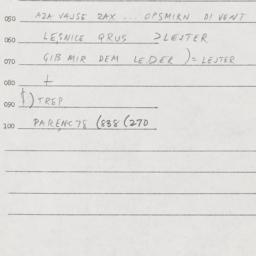 050 AZA VAUSE ZAX ... OPSMIRN DI VENT
060 LESNICE GRUS > LEJTER
070 GIB MIR DEM LEDER ) = LEJTER
080 +
090 $) TREP
100 PARENC78 (538 (270